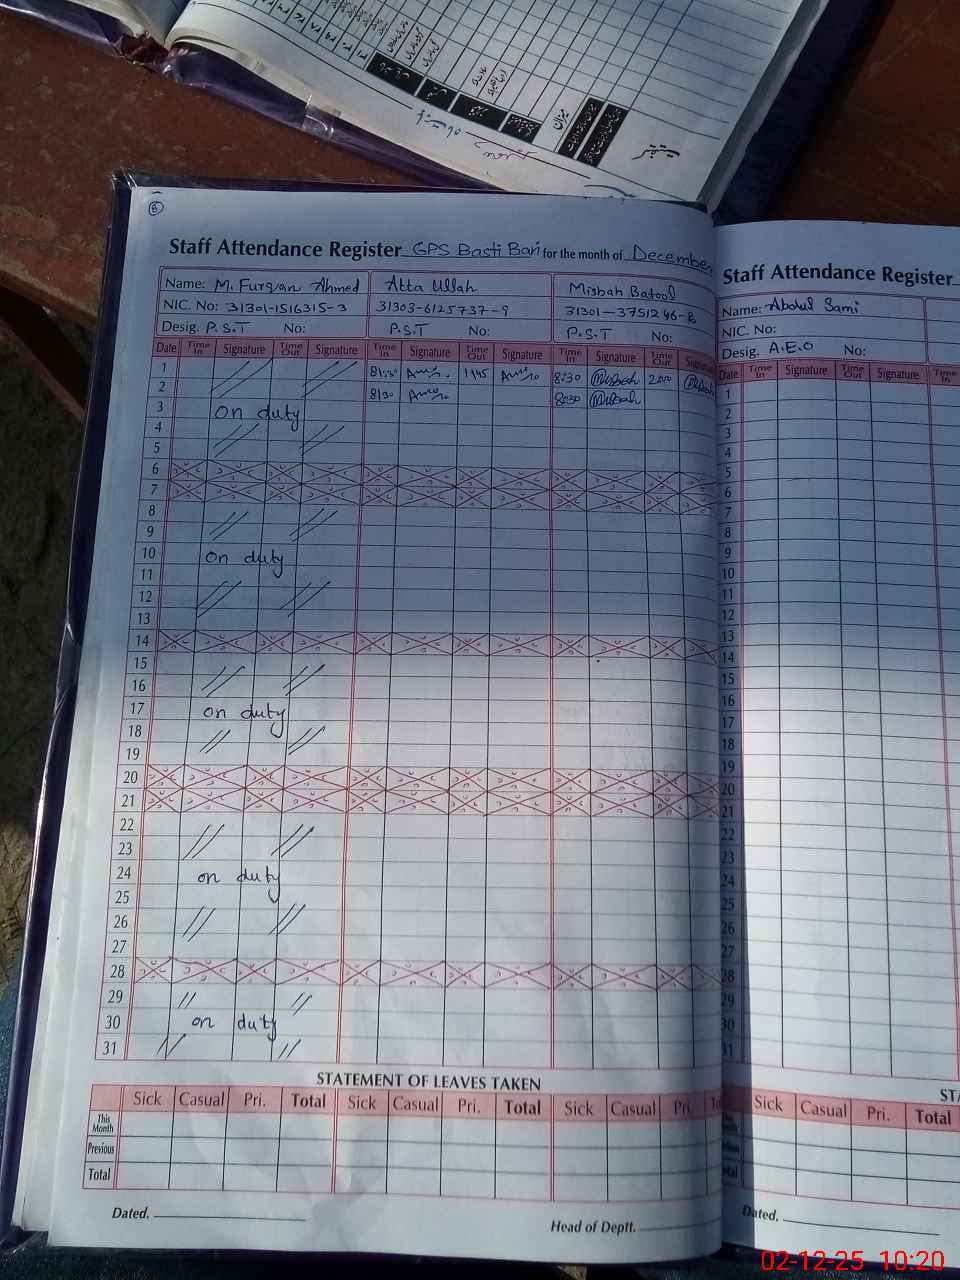 8
Staff Attendance Register GPS Basti Bari for the month of December
Name: M. Furqan Ahmed Atta Ullah Misbah Batool
NIC. No: 31301-1516315-3 31303-6125737-9 31301-3751246-8
Desig. P.S.T No: P.S.T No: P.S.T No:
Date Time In Signature Time Out Signature Time In Signature Time Out Signature Time In Signature Time Out Signature
1 8:30 1:45 8:30 Misbah 2:00 Misbah
2 8:30 8:30 Misbah
3 on duty
4
5
6
7
8
9
10 on duty
11
12
13
14
15
16
17 on duty
18
19
20
21
22
23
24 on duty
25
26
27
28
29
30 on duty
31
STATEMENT OF LEAVES TAKEN
Sick Casual Pri. Total Sick Casual Pri. Total Sick Casual Pri.
This Month
Previous
Total
Dated. Head of Deptt.
Staff Attendance Register
Name: Abdul Sami
NIC. No:
Desig. A.E.O No:
Date Time In Signature Time Out Signature Time In
1
2
3
4
5
6
7
8
9
10
11
12
13
14
15
16
17
18
19
20
21
22
23
24
25
26
27
28
29
30
31
Sick Casual Pri. Total
Dated.
02-12-25 10:20